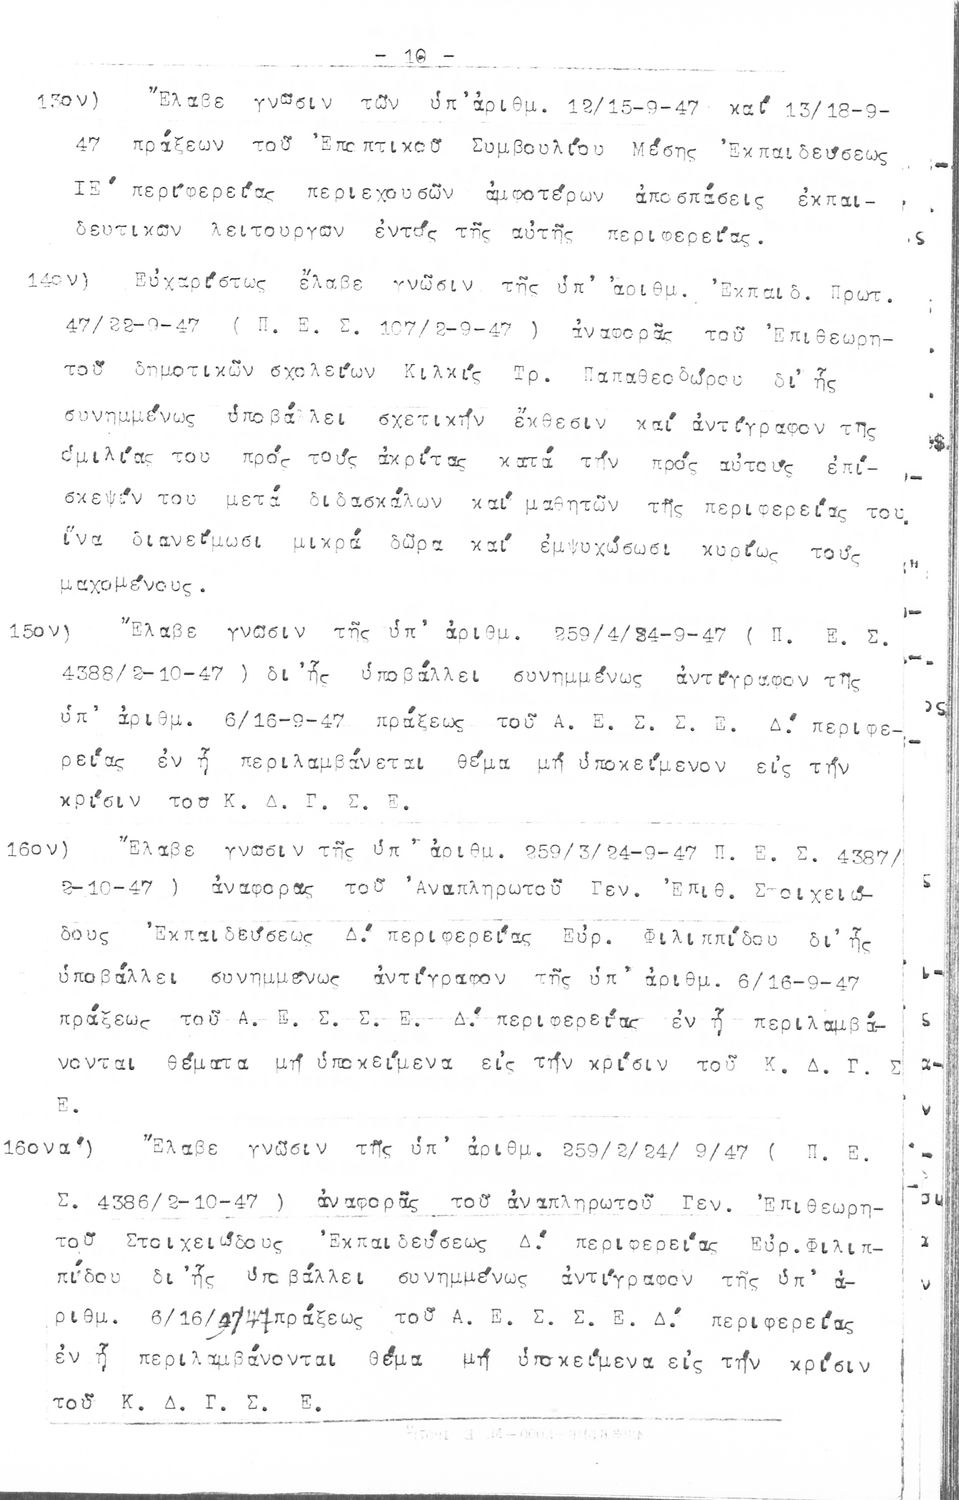 - 10 -
13ον) Ἔλαβε γνῶσιν τῶν ὑπ' ἀριθμ. 12/15-9-47 καί 13/18-9-
47 πράξεων τοῦ Ἐποπτικοῦ Συμβουλίου Μέσης Ἐκπαιδεύσεως
ΙΕ' περιφερείας περιεχουσῶν ἀμφοτέρων ἀποσπάσεις ἐκπαι-
δευτικῶν λειτουργῶν ἐντός τῆς αὐτῆς περιφερείας.
14ον) Εὐχαρίστως ἔλαβε γνῶσιν τῆς ὑπ' ἀριθμ. Ἐκπαιδ. Πρωτ.
47/22-9-47 ( Π. Ε. Σ. 107/2-9-47 ) ἀναφορᾶς τοῦ Ἐπιθεωρη-
τοῦ δημοτικῶν σχολείων Κιλκίς Τρ. Παπαθεοδώρου δι' ἧς
συνημμένως ὑποβάλλει σχετικήν ἔκθεσιν καί ἀντίγραφον τῆς
ὁμιλίας του πρός τούς ἀκρίτας κατά τήν πρός αὐτούς ἐπί-
σκεψίν του μετά διδασκάλων καί μαθητῶν τῆς περιφερείας του,
ἵνα διανείμωσι μικρά δῶρα καί ἐμψυχώσωσι κυρίως τούς
μαχομένους.
15ον) Ἔλαβε γνῶσιν τῆς ὑπ' ἀριθμ. 259/4/24-9-47 ( Π. Ε. Σ.
4388/2-10-47 ) δι' ἧς ὑποβάλλει συνημμένως ἀντίγραφον τῆς
ὑπ' ἀριθμ. 6/16-9-47 πράξεως τοῦ Α. Ε. Σ. Σ. Ε. Δ.' περιφε-
ρείας ἐν ᾗ περιλαμβάνεται θέμα μή ὑποκείμενον εἰς τήν
κρίσιν τοῦ Κ. Δ. Γ. Σ. Ε.
16ον) Ἔλαβε γνῶσιν τῆς ὑπ' ἀριθμ. 259/3/24-9-47 Π. Ε. Σ. 4387/
2-10-47 ) ἀναφορᾶς τοῦ Ἀναπληρωτοῦ Γεν. Ἐπιθ. Στοιχειώ-
δους Ἐκπαιδεύσεως Δ.' περιφερείας Εὐρ. Φιλιππίδου δι' ἧς
ὑποβάλλει συνημμένως ἀντίγραφον τῆς ὑπ' ἀριθμ. 6/16-9-47
πράξεως τοῦ Α. Ε. Σ. Σ. Ε. Δ.' περιφερείας ἐν ᾗ περιλαμβά-
νονται θέματα μή ὑποκείμενα εἰς τήν κρίσιν τοῦ Κ. Δ. Γ. Σ
Ε.
16ονα') Ἔλαβε γνῶσιν τῆς ὑπ' ἀριθμ. 259/2/24/ 9/47 ( Π. Ε.
Σ. 4386/2-10-47 ) ἀναφορᾶς τοῦ ἀναπληρωτοῦ Γεν. Ἐπιθεωρη-
τοῦ Στοιχειώδους Ἐκπαιδεύσεως Δ.' περιφερείας Εὐρ.Φιλιπ-
πίδου δι 'ἧς ὑποβάλλει συνημμένως ἀντίγραφον τῆς ὑπ' ἀ-
ριθμ. 6/16/9/47 πράξεως τοῦ Α. Ε. Σ. Σ. Ε. Δ.' περιφερείας
ἐν ᾗ περιλαμβάνονται θέμα μή ὑποκείμενα εἰς τήν κρίσιν
τοῦ Κ. Δ. Γ. Σ. Ε.